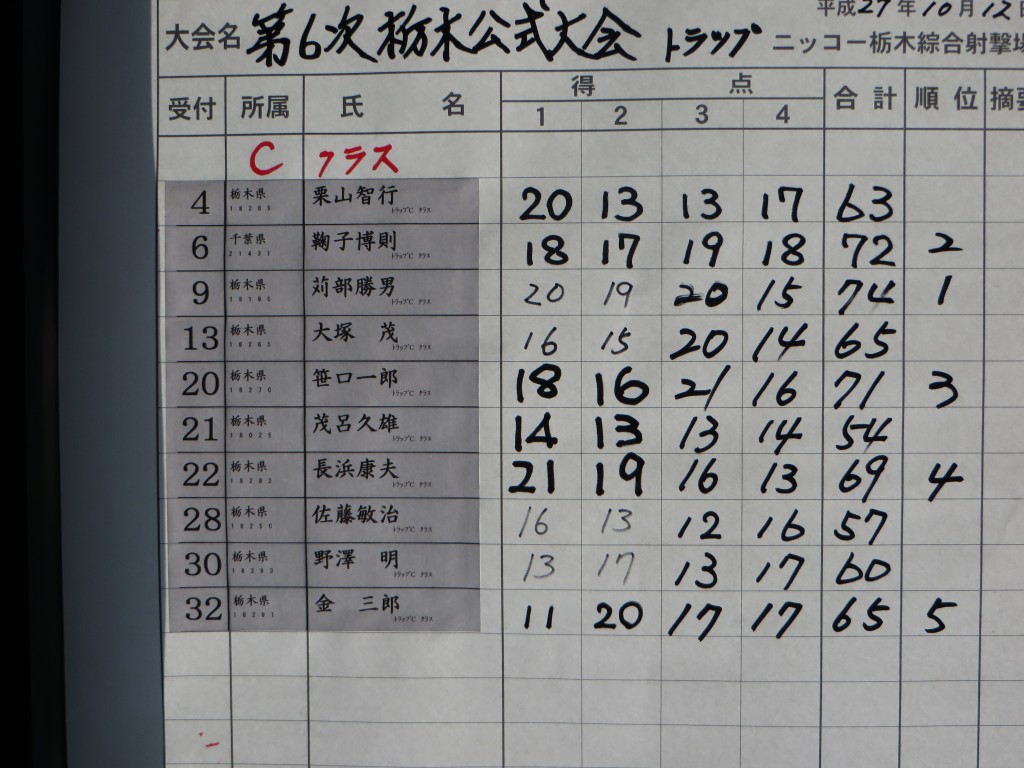 平成27年10月12日
大会名 第6次栃木公式大会 トラップ ニッコー栃木綜合射撃場
受付 所属 氏 名 得 点 合計 順位 摘要
1 2 3 4
C クラス
4 栃木県 栗山智行 トラップC クラス 20 13 13 17 63
6 千葉県 21431 鞠子博則 トラップC クラス 18 17 19 18 72 2
9 栃木県 苅部勝男 トラップC クラス 20 19 20 15 74 1
13 栃木県 18265 大塚 茂 トラップC クラス 16 15 20 14 65
20 栃木県 18270 笹口一郎 トラップC クラス 18 16 21 16 71 3
21 栃木県 18025 茂呂久雄 トラップC クラス 14 13 13 14 54
22 栃木県 18282 長浜康夫 トラップC クラス 21 19 16 13 69 4
28 栃木県 18250 佐藤敏治 トラップC クラス 16 13 12 16 57
30 栃木県 18283 野澤 明 トラップC クラス 13 17 13 17 60
32 栃木県 18291 金 三郎 トラップC クラス 11 20 17 17 65 5